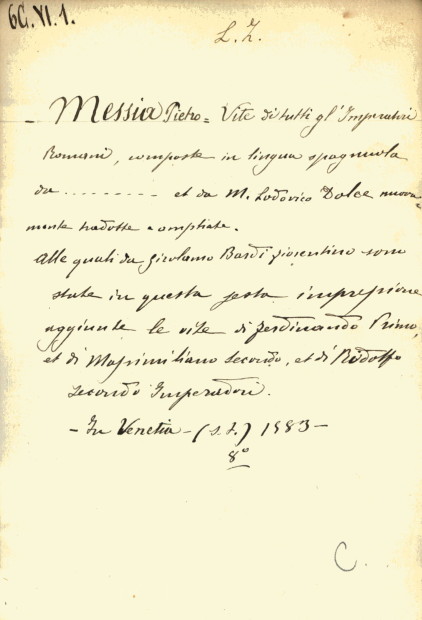 6G.VI.1.
L. Z.
- Messia Pietro = Vite di tutti gl'Imperatori
Romani, composte in lingua spagnuola
da ......... et da M. Lodovico Dolce nuova=
mente tradotte e ampliate.
Alle quali da Girolamo Bardi fiorentino sono
state in questa sesta impressione
aggiunte le vite di Ferdinando Primo,
et di Massimiliano secondo, et di Rodolfo
secondo Imperadori.
- In Venetia - (s. t.) 1583 -
8º
C.